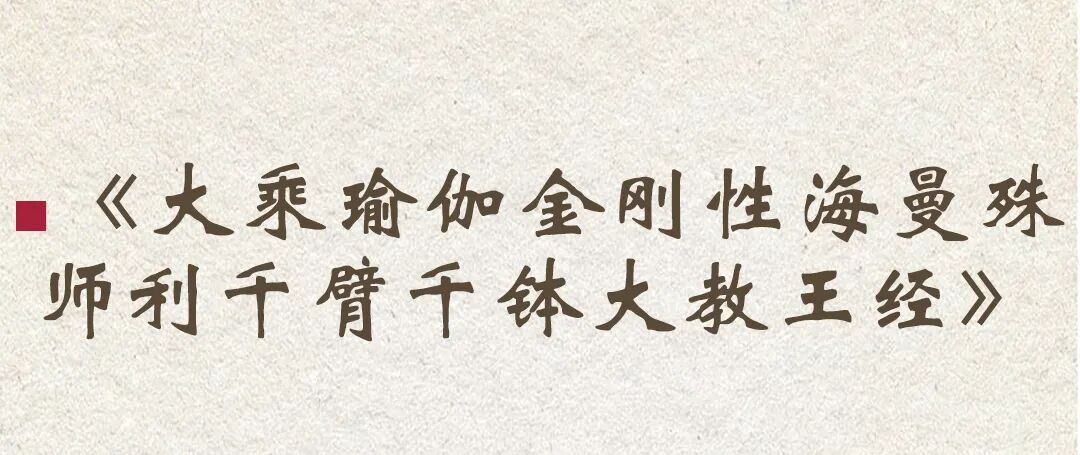 《大乘瑜伽金刚性海曼殊
师利千臂千钵大教王经》